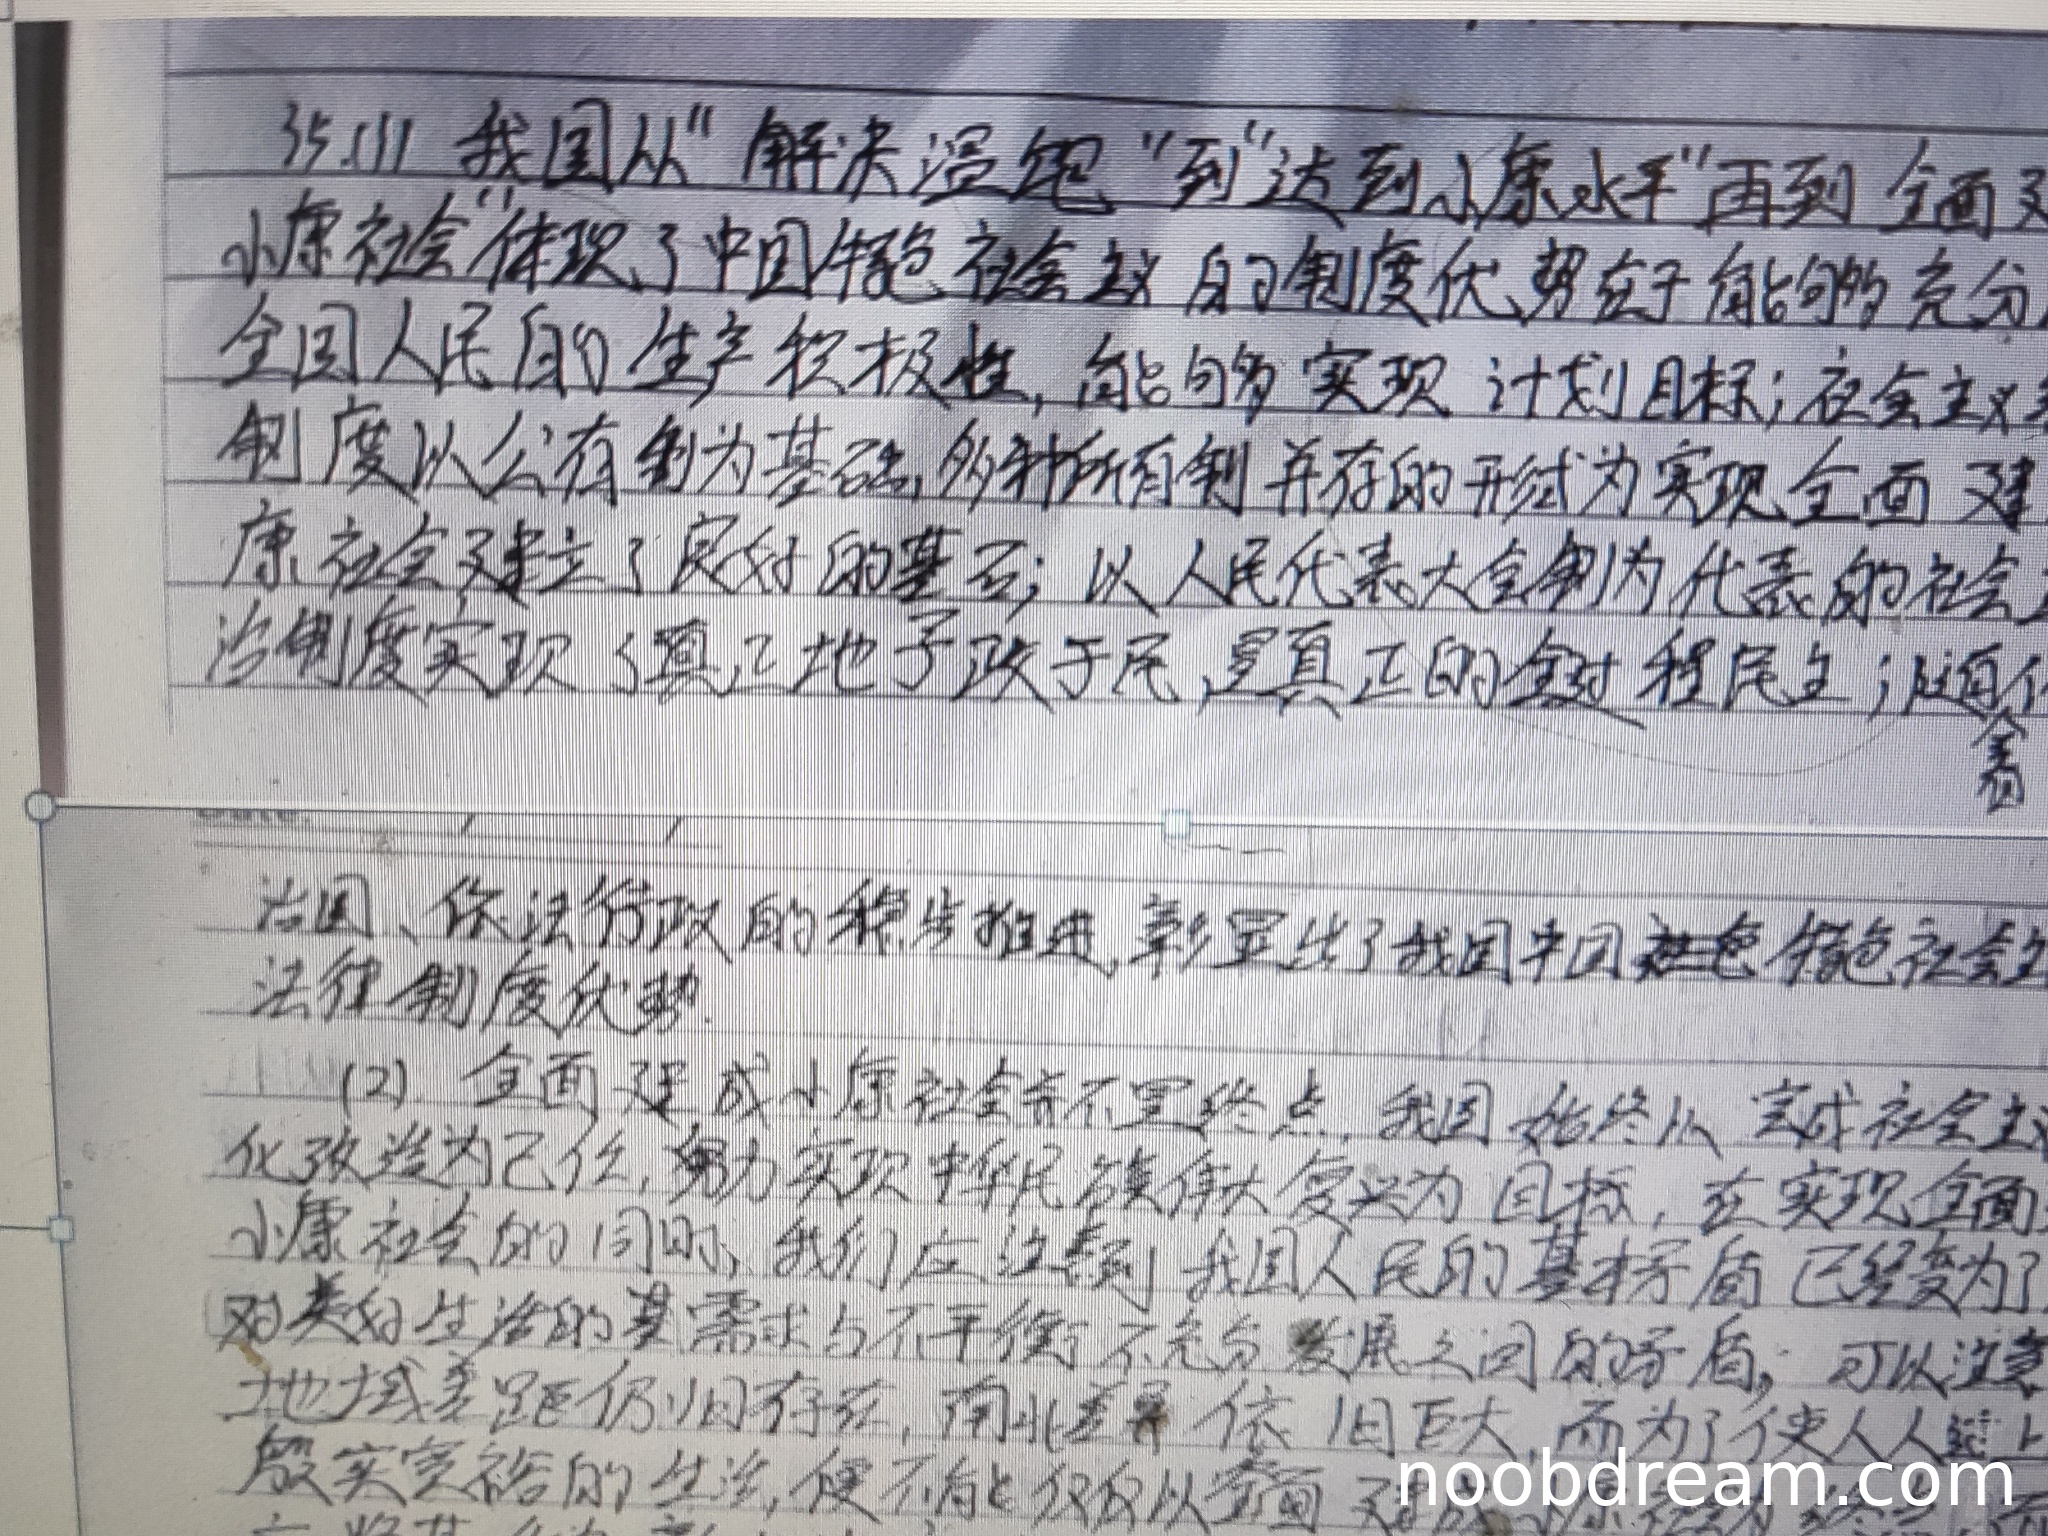 35.(1) 我国从"解决温饱"到"达到小康水平"再到 全面
小康社会"体现了中国特色社会主义的制度优势在于能够充分
全国人民的生产积极性,能够实现计划目标;社会主义
制度以公有制为基础,多种所有制并存的形式为实现全面建
康社会建立了良好的基石;以人民代表大会制为代表的社会
治制度实现了真正地予政于民,是真正的全过程民主;随
着
治国、依法行政的稳步推进,彰显出了我国中国 特色社会主
法律制度优势.
(2) 全面建成小康社会并不是终点,我国始终以完成社会主义
化改造为己任,努力实现中华民族伟大复兴为目标,在实现全面
小康社会的同时,我们应注意到我国人民的基本矛盾已经变为了
对美好生活的 需求与不平衡不充分发展之间的矛盾;可以注意
地域差距仍旧存在,南北差异依旧巨大,而为了使人人 上
殷实富裕的生活,便不能仅仅以全面建成小康社会为
noobdream.com